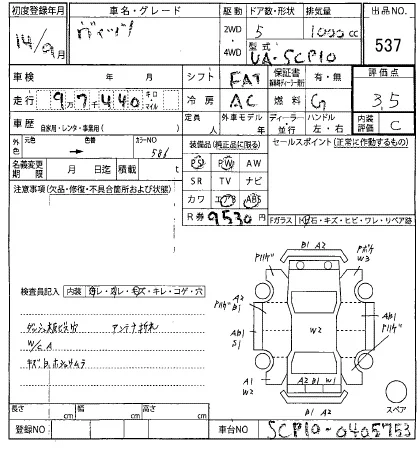 初度登録年月 車名・グレード 駆動 ドア数・形状 排気量 出品NO.
14/9月 ヴィッツ 2WD・4WD 5 1000cc 537
型式 UA-SCP10
車検 年 月 シフト FAT 保証書 有・無 評価点
走行 97440 キロ マイル 冷房 AC 燃料 G 3.5
車歴 自家用・レンタ・事業用( ) 定員 人 外車モデル 年 ディーラー・並行 ハンドル 左・右 内装評価 C
外色 元色 色替 カラーNO 586
→
名義変更期限 月 日迄 積載 t
装備品(純正品に限る)
PS PW AW
SR TV ナビ
カワ エアB ABS
R券 9530
セールスポイント(正常に作動するもの)
注意事項(欠品・修復・不具合箇所および状態)
Fガラス 石・キズ・ヒビ・ワレ・リペア跡
検査員記入 内装 ・コレ・キズ・キレ・コゲ・穴
アンテナ折れ
W/C A
B1 A2
W3
A2 B1
Ab1 S1
W2
Ab1
A1 W2
A2 B1 W1
A1
B1 A2
スペア
長さ cm 幅 cm 高さ cm
登録NO 車台NO SCP10-0405753